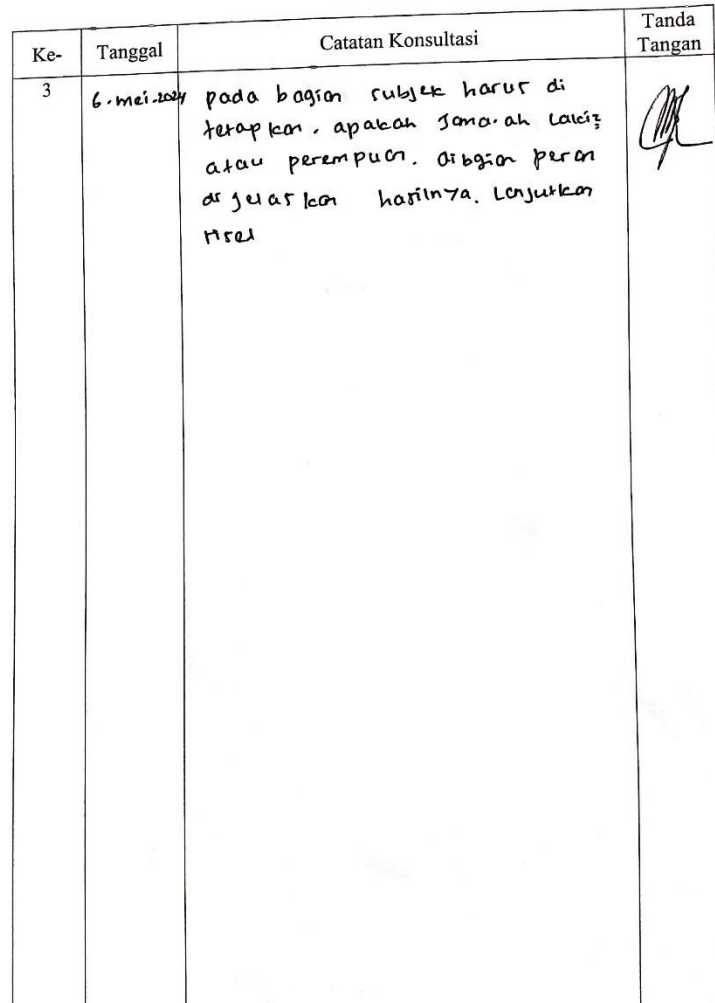 Ke-
Tanggal
Catatan Konsultasi
Tanda
Tangan
3
6.mei.2024
pada bagian subjek harus di
tetapkan. apakah Jama.ah Laki2
atau perempuan. dibgian peran
di jelaskan hasilnya. Lanjutkan
riset